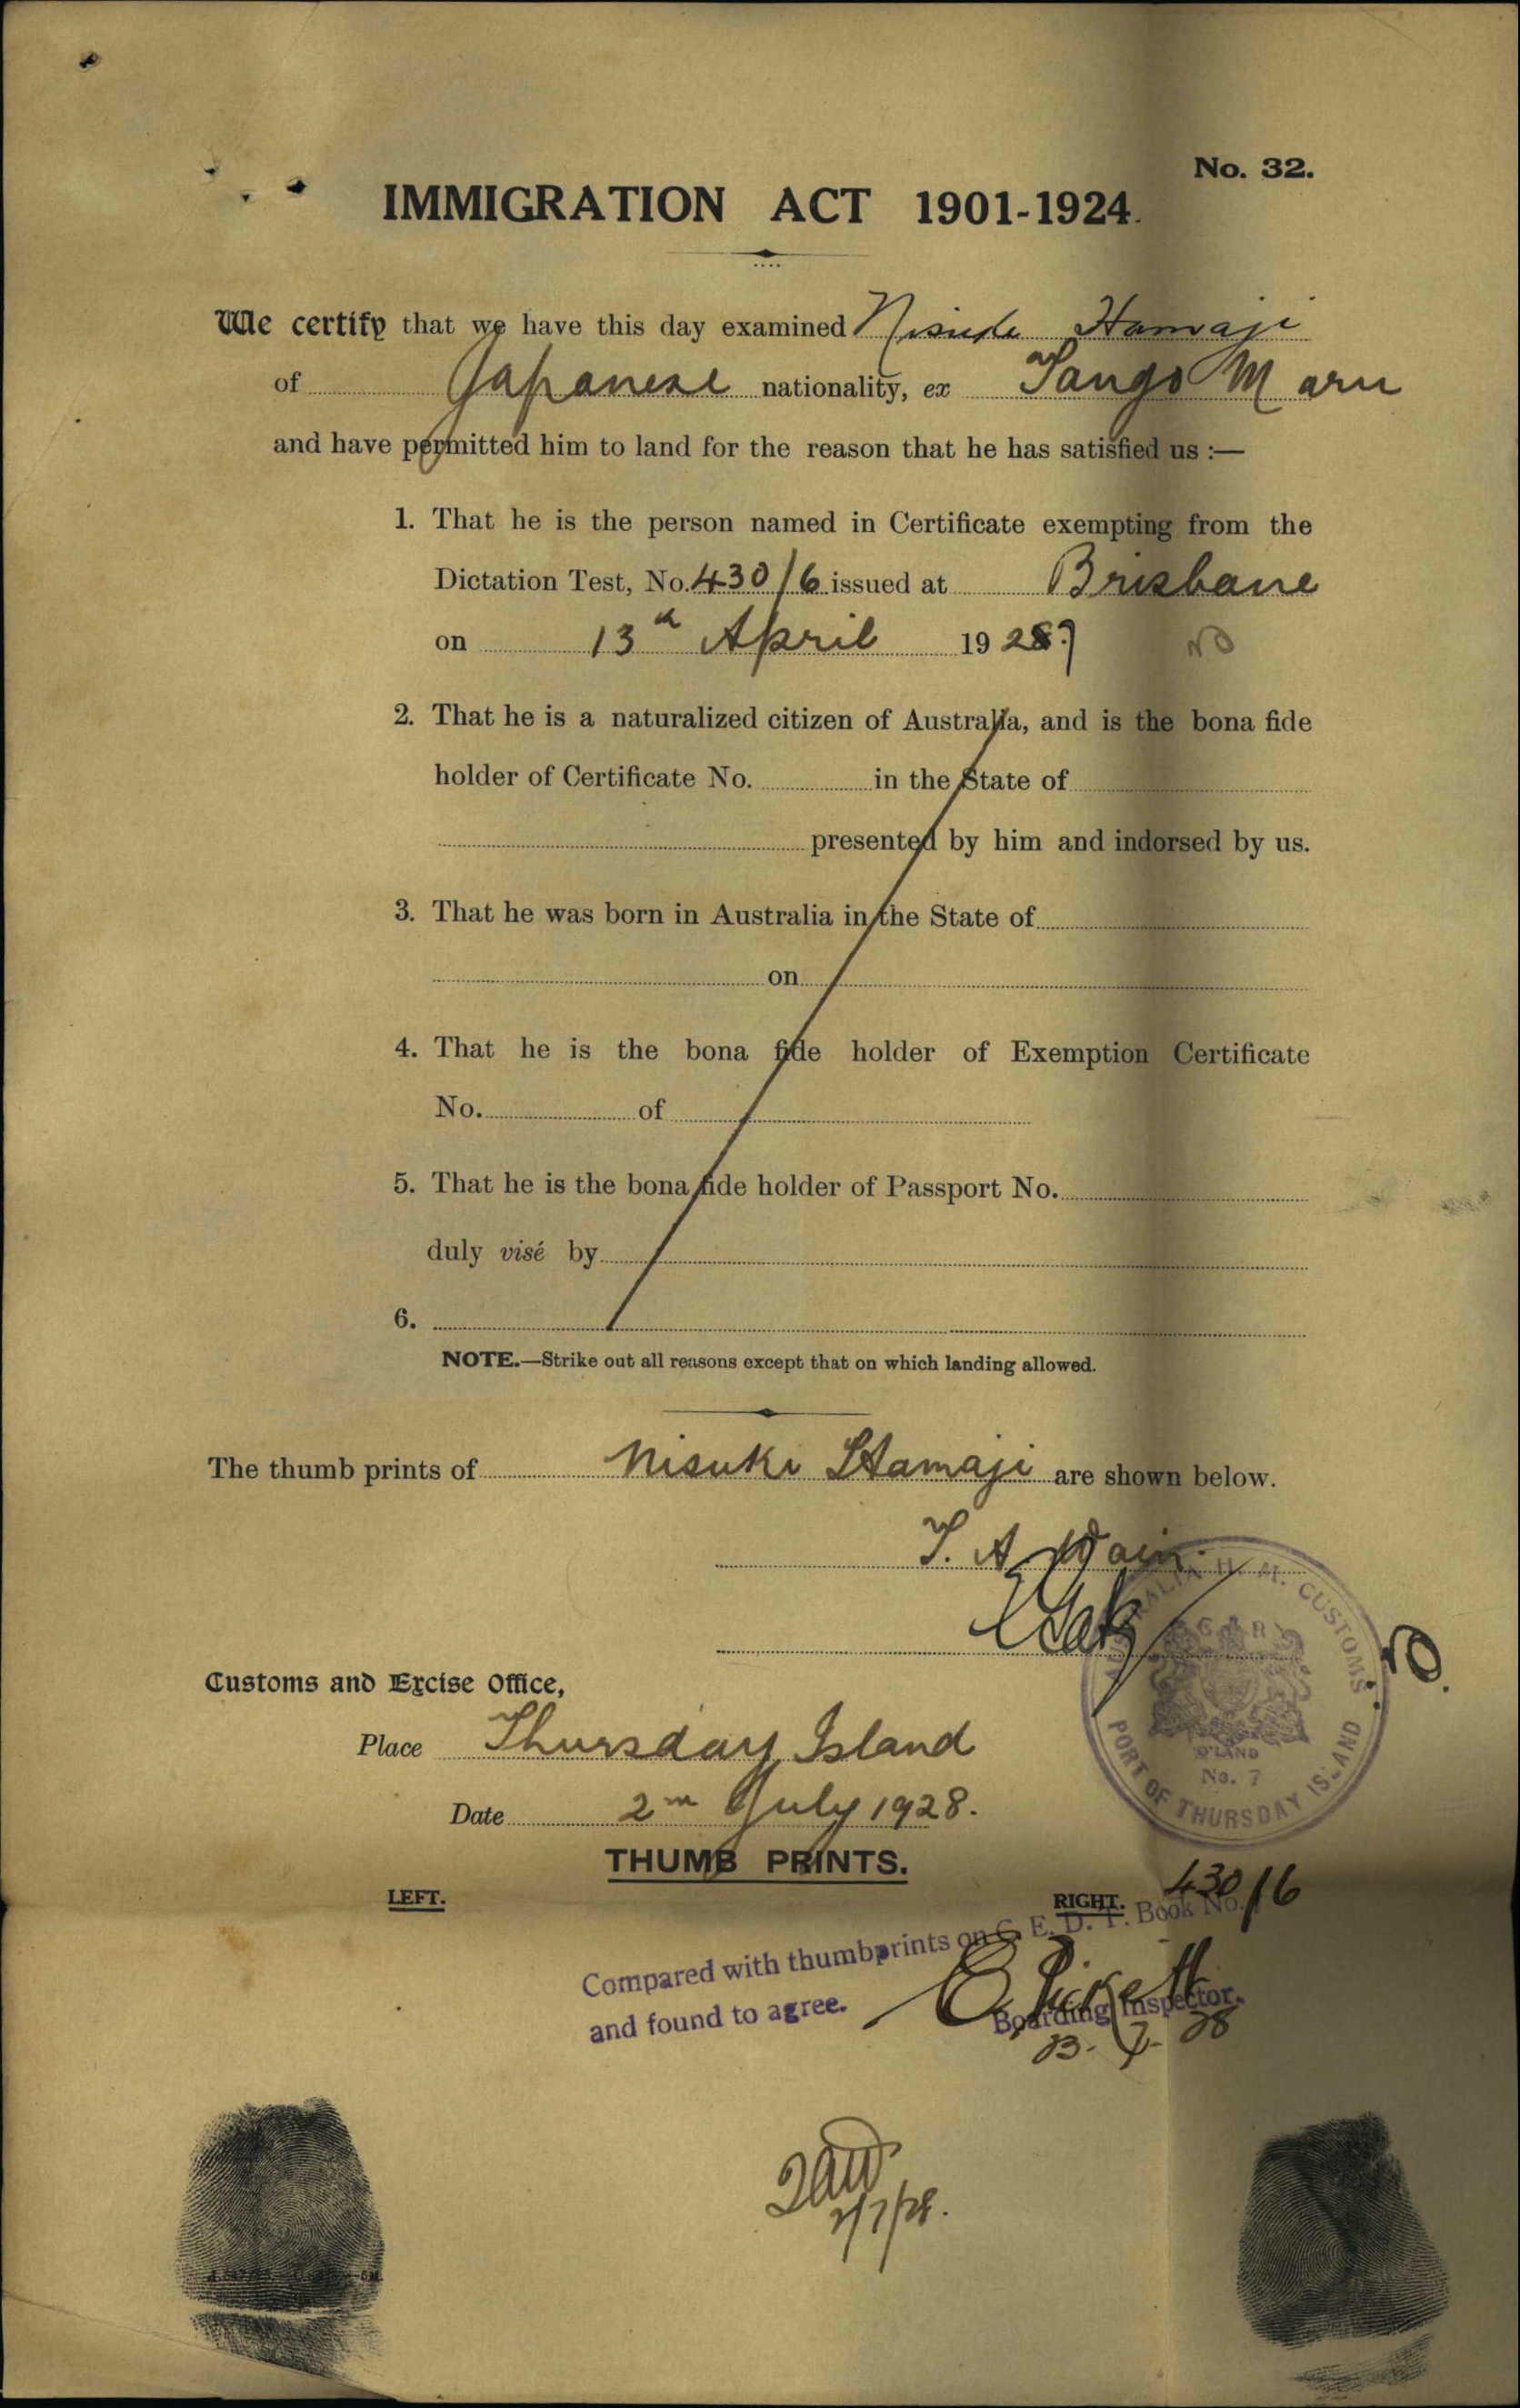 No. 32.
IMMIGRATION ACT 1901-1924.
We certify that we have this day examined Nisuke Hamaji
of Japanese nationality, ex Tango Maru
and have permitted him to land for the reason that he has satisfied us :—
1. That he is the person named in Certificate exempting from the
Dictation Test, No. 430/6 issued at Brisbane
on 13th April 1927
2. That he is a naturalized citizen of Australia, and is the bona fide
holder of Certificate No. in the State of
presented by him and indorsed by us.
3. That he was born in Australia in the State of
on
4. That he is the bona fide holder of Exemption Certificate
No. of
5. That he is the bona fide holder of Passport No.
duly visé by
6.
NOTE.—Strike out all reasons except that on which landing allowed.
The thumb prints of Nisuki Hamaji are shown below.
T. A.
AUSTRALIA H. M. CUSTOMS
G R
Q'LAND
No. 7
PORT OF THURSDAY ISLAND
Customs and Excise Office,
Place Thursday Island
Date 2nd July 1928.
THUMB PRINTS.
LEFT.
RIGHT.
430/6
Compared with thumbprints on C. E. D. T. Book No.
and found to agree.
Boarding Inspector.
2/7/28.